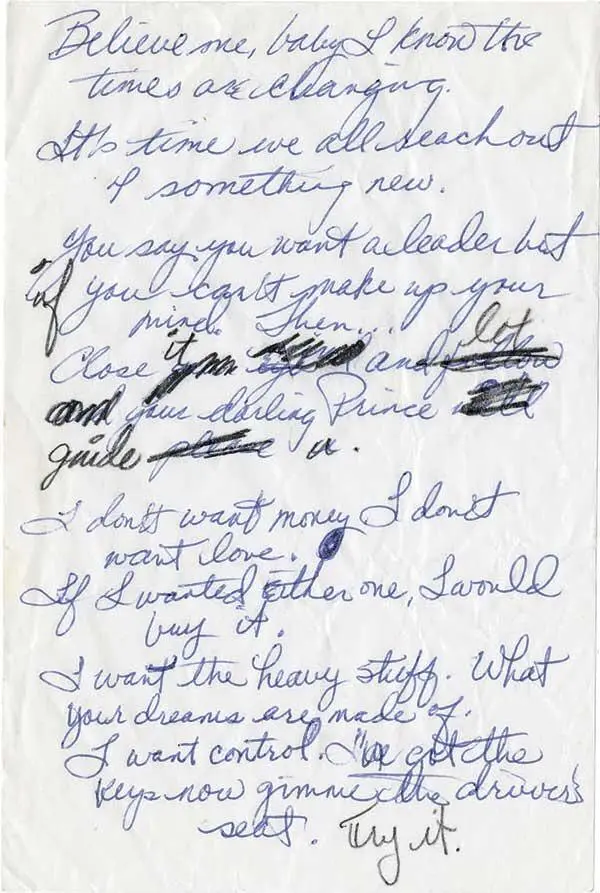 Believe me, baby I know the
times are changing.
It's time we all reach out
4 something new.
You say you want a leader but
if you can't make up your
mind. Then...
Close it and let
your darling Prince
guide u.
I don't want money I don't
want love.
If I wanted either one, I would
buy it.
I want the heavy stuff. What
your dreams are made of.
I want control. I've got the
keys now gimme the driver's
seat. Try it.